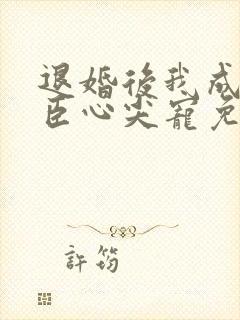 退婚後我成
臣心尖寵免
許筠